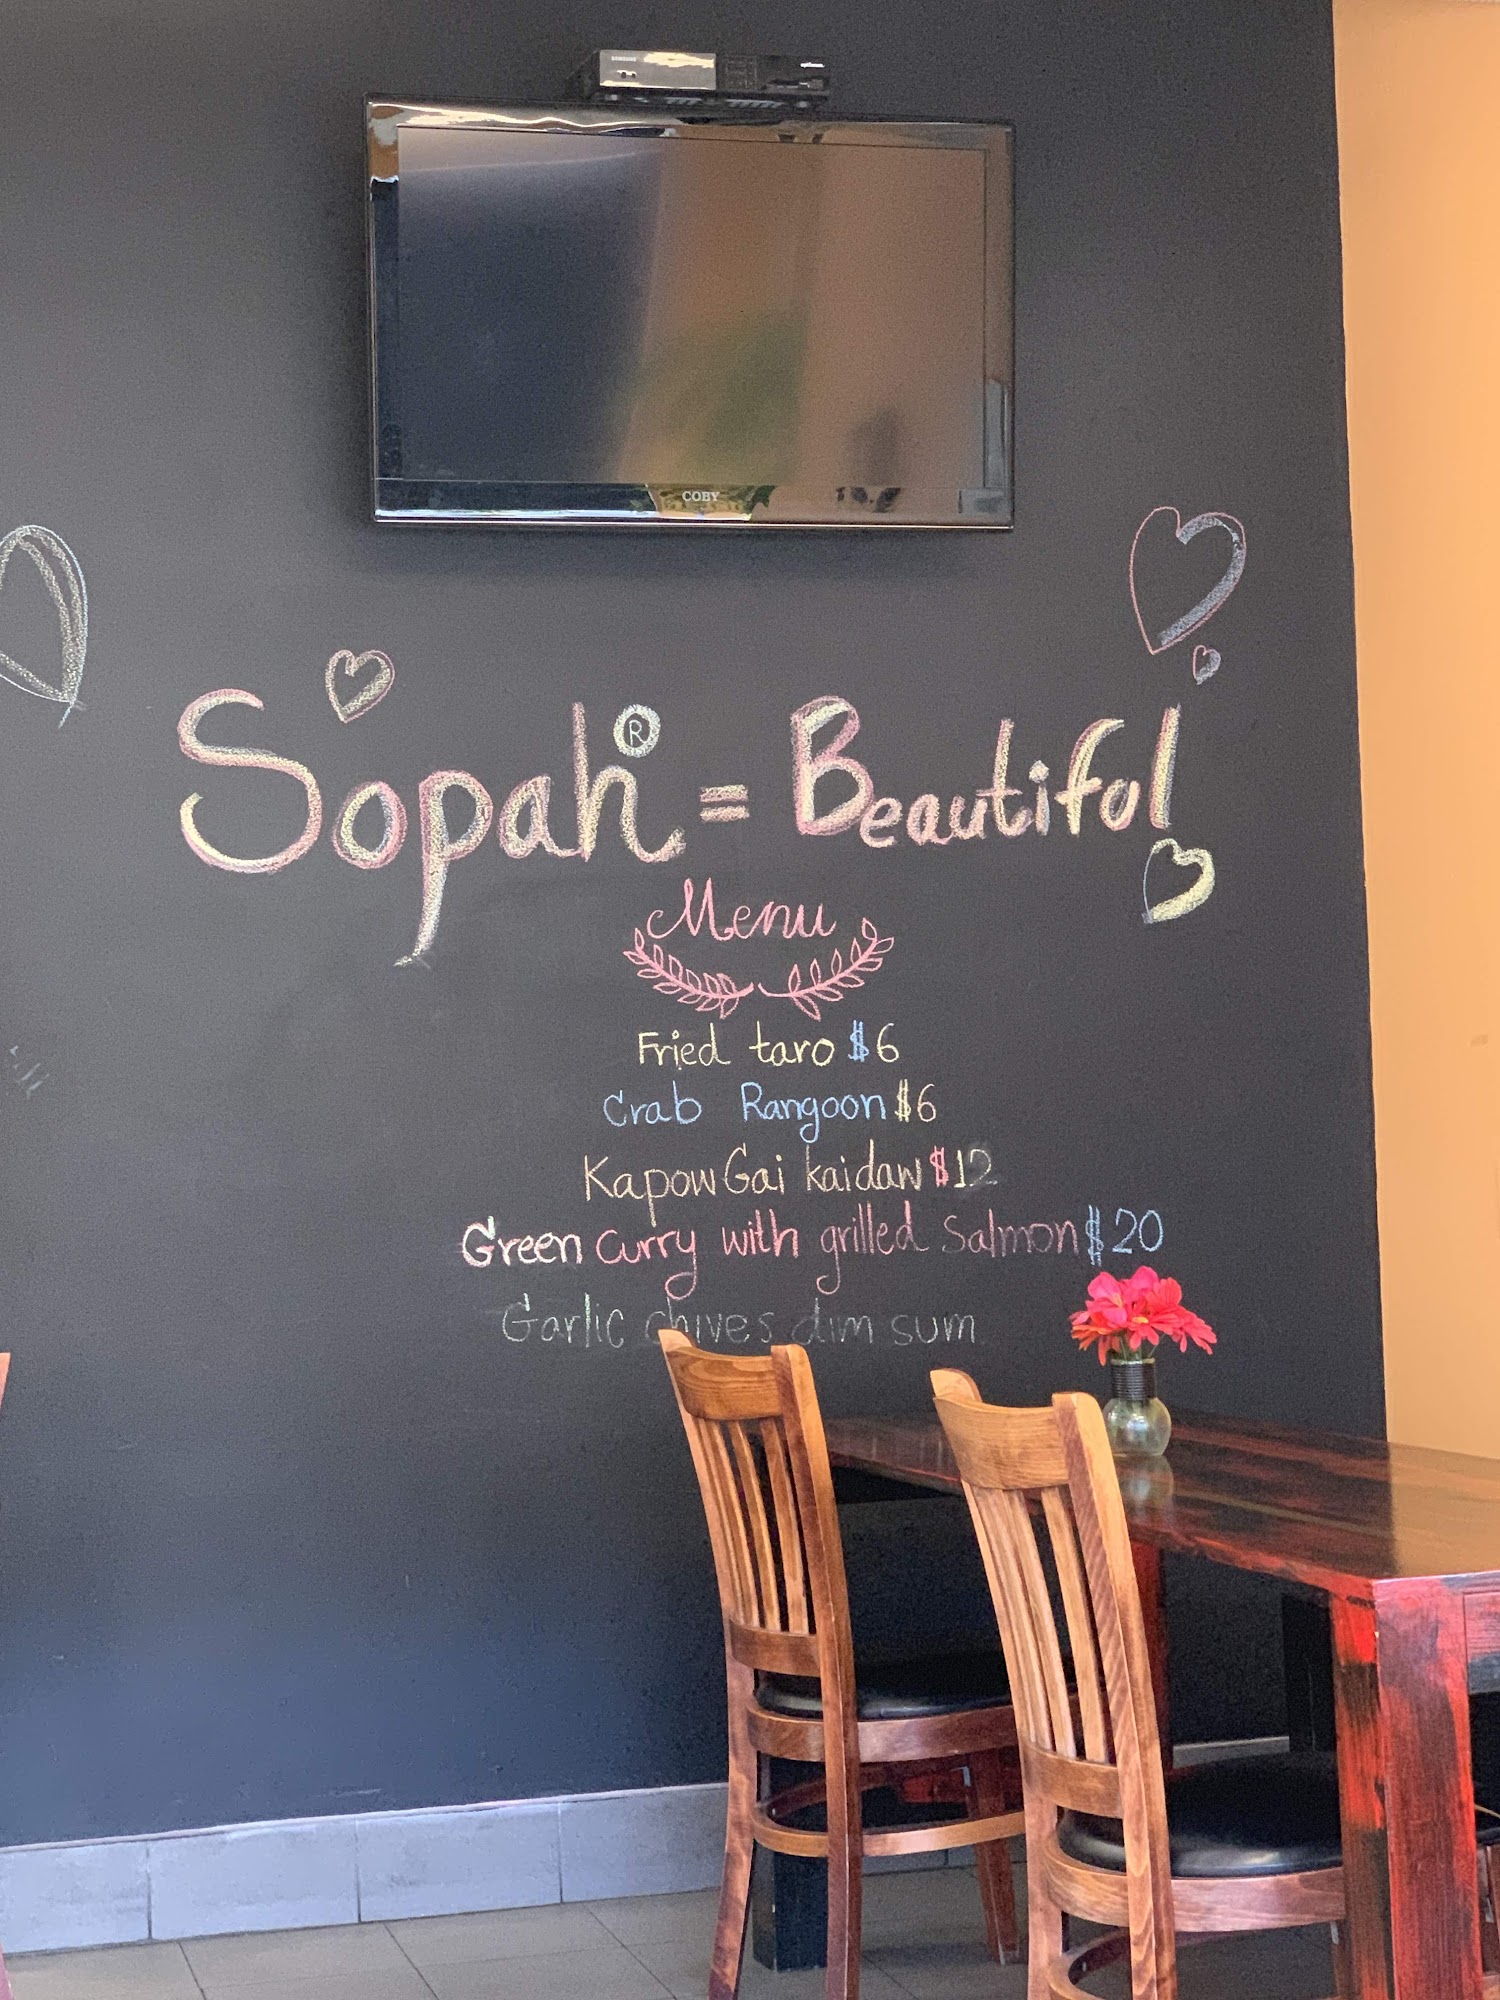 SAMSUNG
COBY
Sopah® = Beautiful
Menu
Fried taro $6
Crab Rangoon $6
Kapow Gai kaidaw $12
Green curry with grilled Salmon $20
Garlic chives dim sum